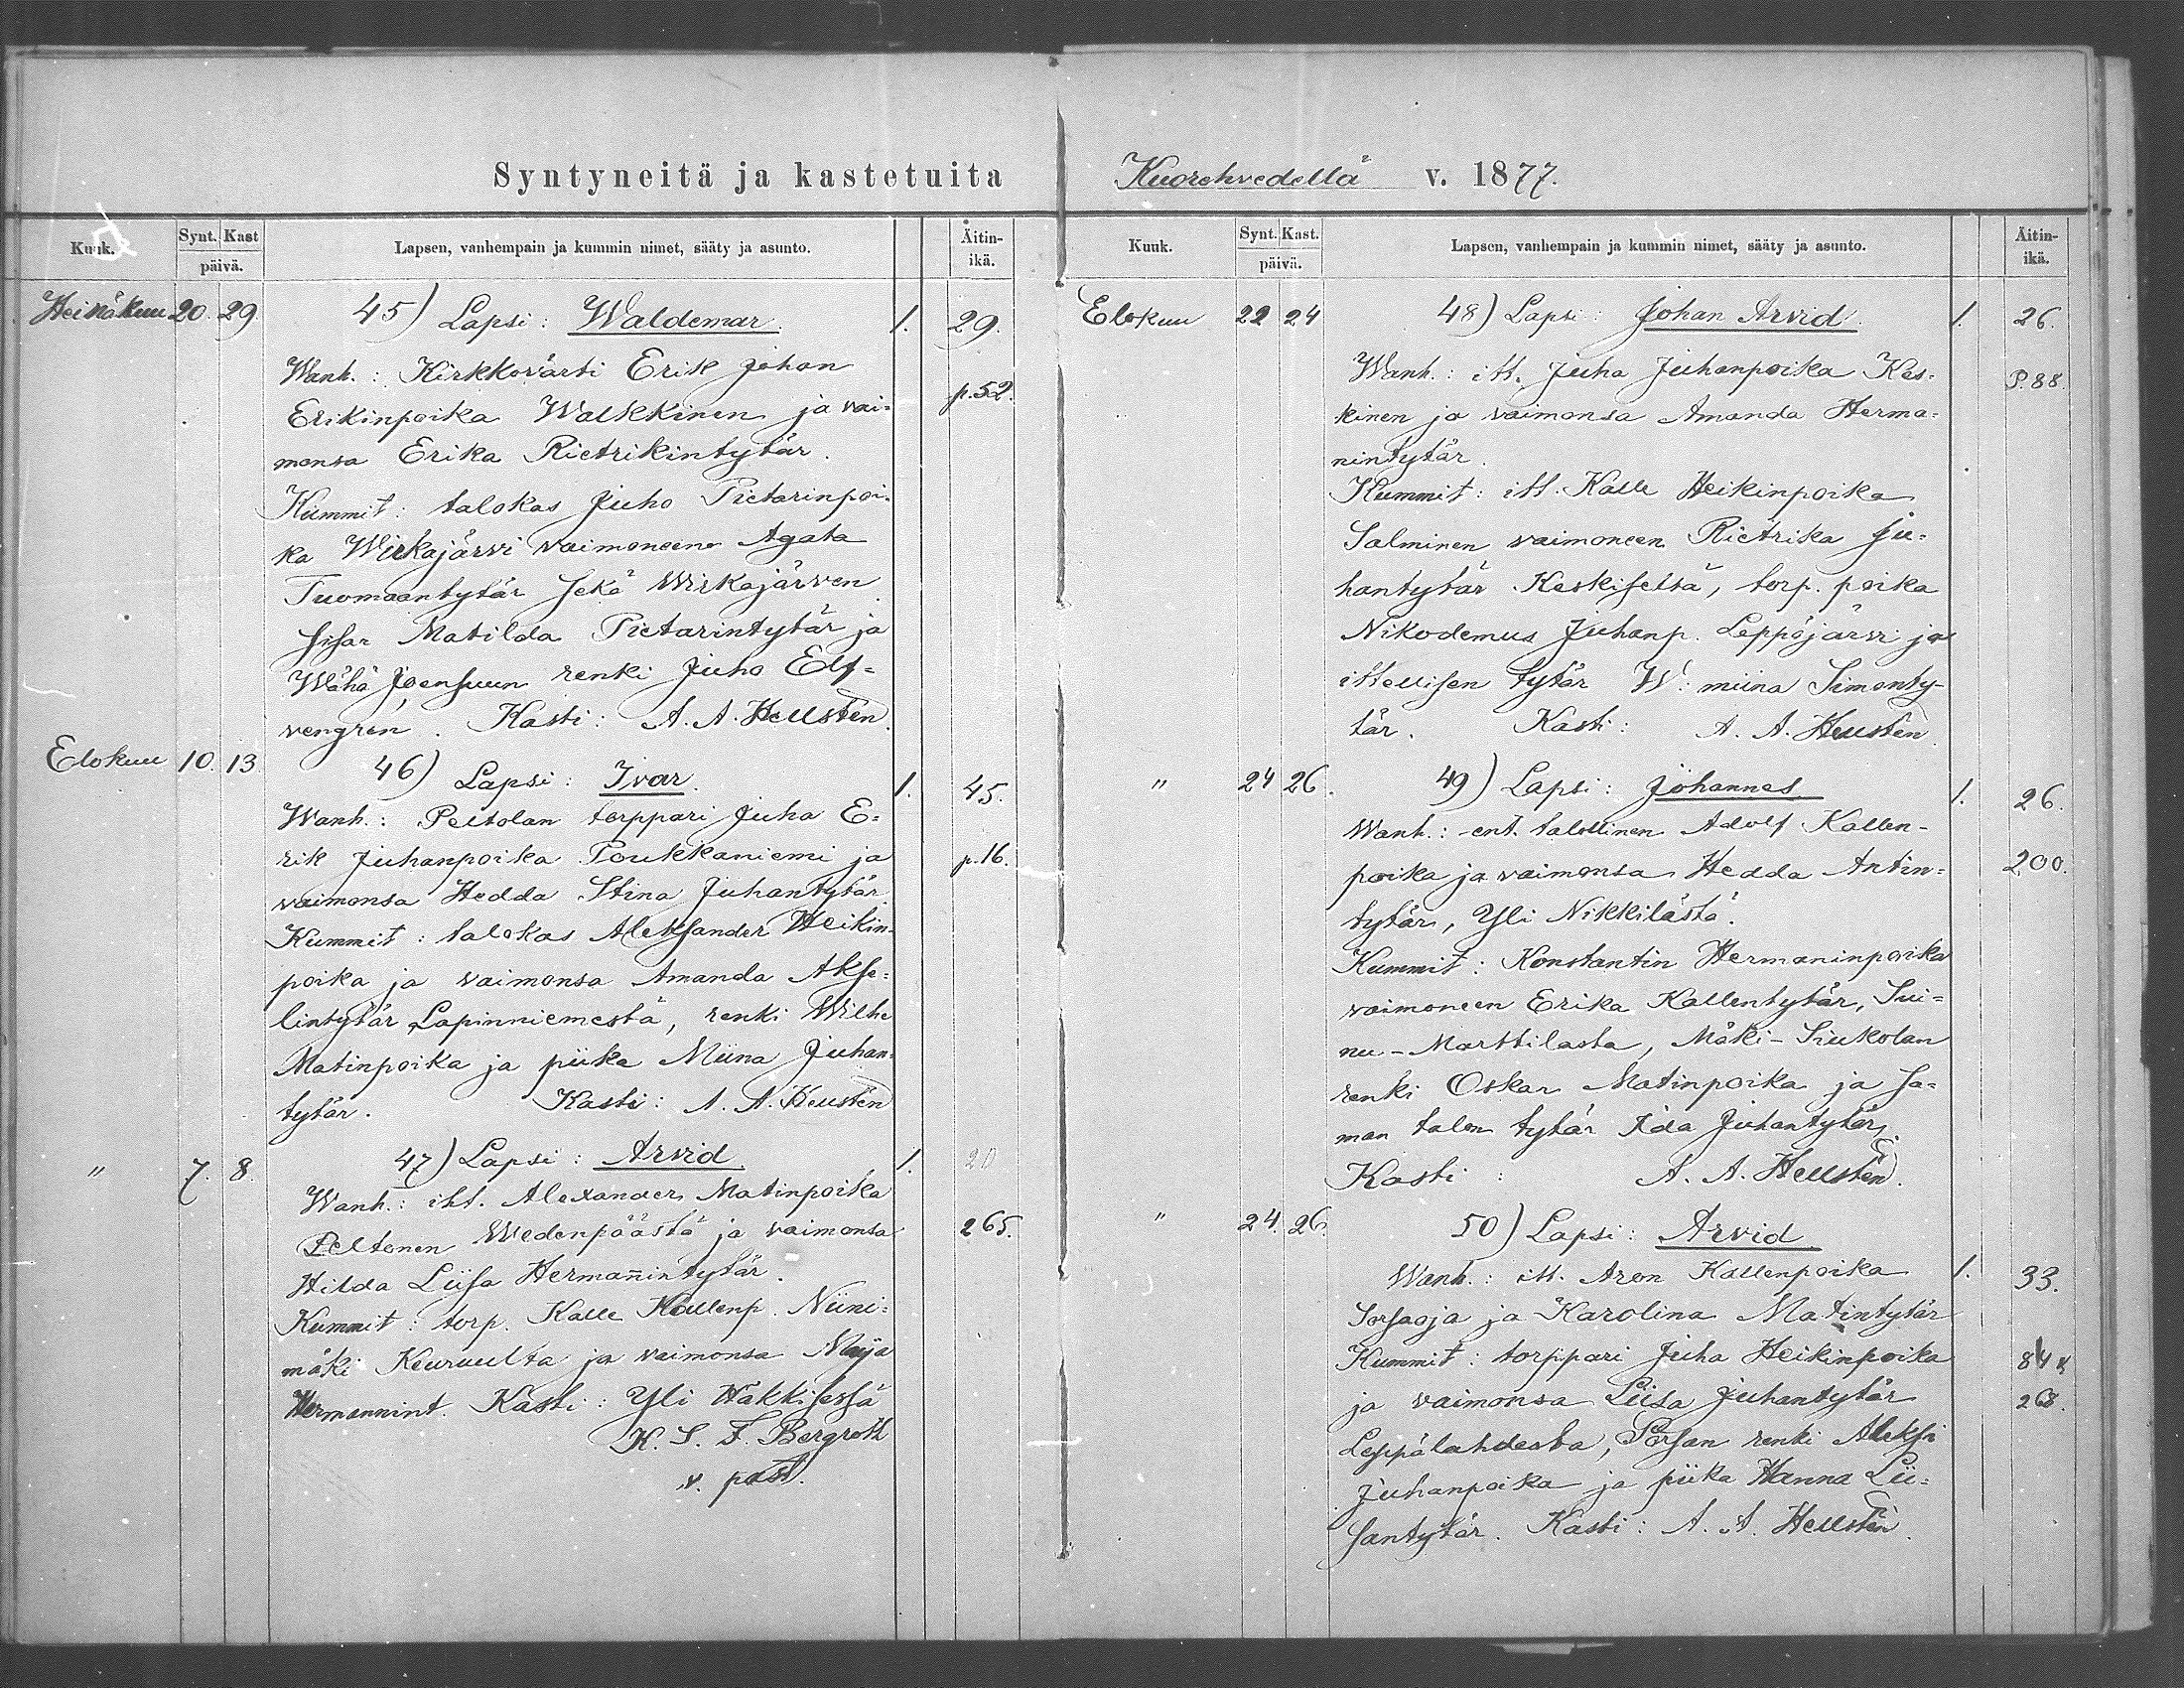 Syntyneitä ja kastetuita
Kuuk.
Synt. Kast
päivä.
Lapsen, vanhempain ja kummin nimet, sääty ja asunto.
Äitin-
ikä.
Heinäkuu 20. 29. 45) Lapsi: Waldemar 1. 29.
Wanh.: Kirkkovärti Erik Johan
p. 52.
Erikinpoika Walkkinen ja vai-
monsa Erika Rietrikintytär.
Kummit: talokas Juho Pietarinpoi-
ka Wirkajärvi vaimoneen Agata
Tuomaantytär sekä Wirkajärven
sisar Matilda Pietarintytär ja
Wähä Joensuun renki Juho Elf-
vengren. Kasti: A. A. Hellstén
Elokuu 10. 13. 46) Lapsi: Ivar. 1. 45.
Wanh.: Peltolan torppari Juha E-
rik Juhanpoika Poukkaniemi ja p. 16.
vaimonsa Hedda Stina Juhantytär.
Kummit: talokas Aleksander Heikin-
poika ja vaimonsa Amanda Akse-
lintytär Lapinniemestä, renki Wilhe
Matinpoika ja piika Miina Juhan-
tytär. Kasti: A. A. Hellstén
" 7. 8. 47) Lapsi: Arvid 1. 20
Wanh.: iht. Alexander Matinpoika
Peltonen Wedenpäästä ja vaimonsa 265.
Hilda Liisa Hermannintytär.
Kummit: torp. Kalle Kallenp. Niini-
mäki Keuruulta ja vaimonsa Maija
Hermannint. Kasti: Yli Häkkisessä
K. S. F. Bergroth
v. past.
Kuorehvedellä v. 1877.
Kuuk.
Synt. Kast.
päivä.
Lapsen, vanhempain ja kummin nimet, sääty ja asunto.
Äitin-
ikä.
Elokuu 22 24 48) Lapsi: Johan Arvid. 1. 26.
Wanh.: itt. Juha Juhanpoika Kes-
P. 88.
kinen ja vaimonsa Amanda Herma-
nintytär.
Kummit: itt. Kalle Heikinpoika
Salminen vaimoneen Rietrika Ju-
hantytär Keskiseltä, torp. poika
Nikodemus Juhanp. Leppäjärvi ja
ittellisen tytär W: miina Simonty-
tär. Kasti: A. A. Hellstén
" 24 26. 49) Lapsi: Johannes 1. 26.
Wanh.: ent. talollinen Adolf Kallen-
poika ja vaimonsa Hedda Antin- 200.
tytär, Yli Nikkilästä.
Kummit: Konstantin Hermaninpoika
vaimoneen Erika Kallentytär, Sui-
nu-Marttilasta, Mäki-Siukolan
renki Oskar Matinpoika ja sa-
man talon tytär Ida Juhantytär.
Kasti: A. A. Hellstén.
" 24. 26. 50) Lapsi: Arvid
Wanh.: itt. Aron Kallenpoika 1. 33.
Sorsaoja ja Karolina Matintytär
Kummit: torppari Juha Heikinpoika
ja vaimonsa Liisa Juhantytär 268.
Leppälahdesta, Sorsan renki Aleksi
Juhanpoika ja piika Hanna Lii-
santytär. Kasti: A. A. Hellstén.